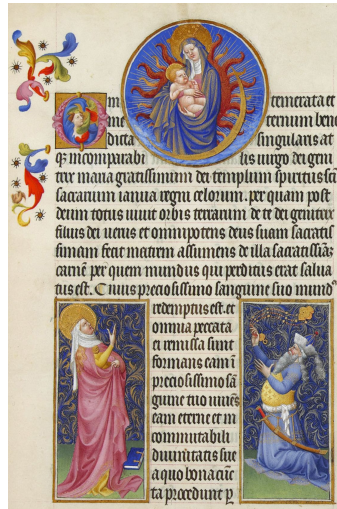 m temerata et
ternum bene
dicta singularis at
q3 incomparabi lis uirgo dei geni
trix maria gratissimum dei templum spiritus sci
sacrarium ianua regni celorum. per quam post
deum totus uiuit orbis terrarum de te dei genitrix
filius dei uerus et omnipotens deus suam sacratis
simam fecit matrem assumens de illa sacratissimā
carnē per quem mundus qui perditus erat salua
tus est. Cuius preciosissimo sanguine suo mund9
redemptus est. et
omnia peccata
ei remissa sunt
formans eam ī
preciosissimo sā
guine tuo uniēs
eam eterne et in
commutabili
diuinitatis sue
a quo bona cūc
ta procedunt p